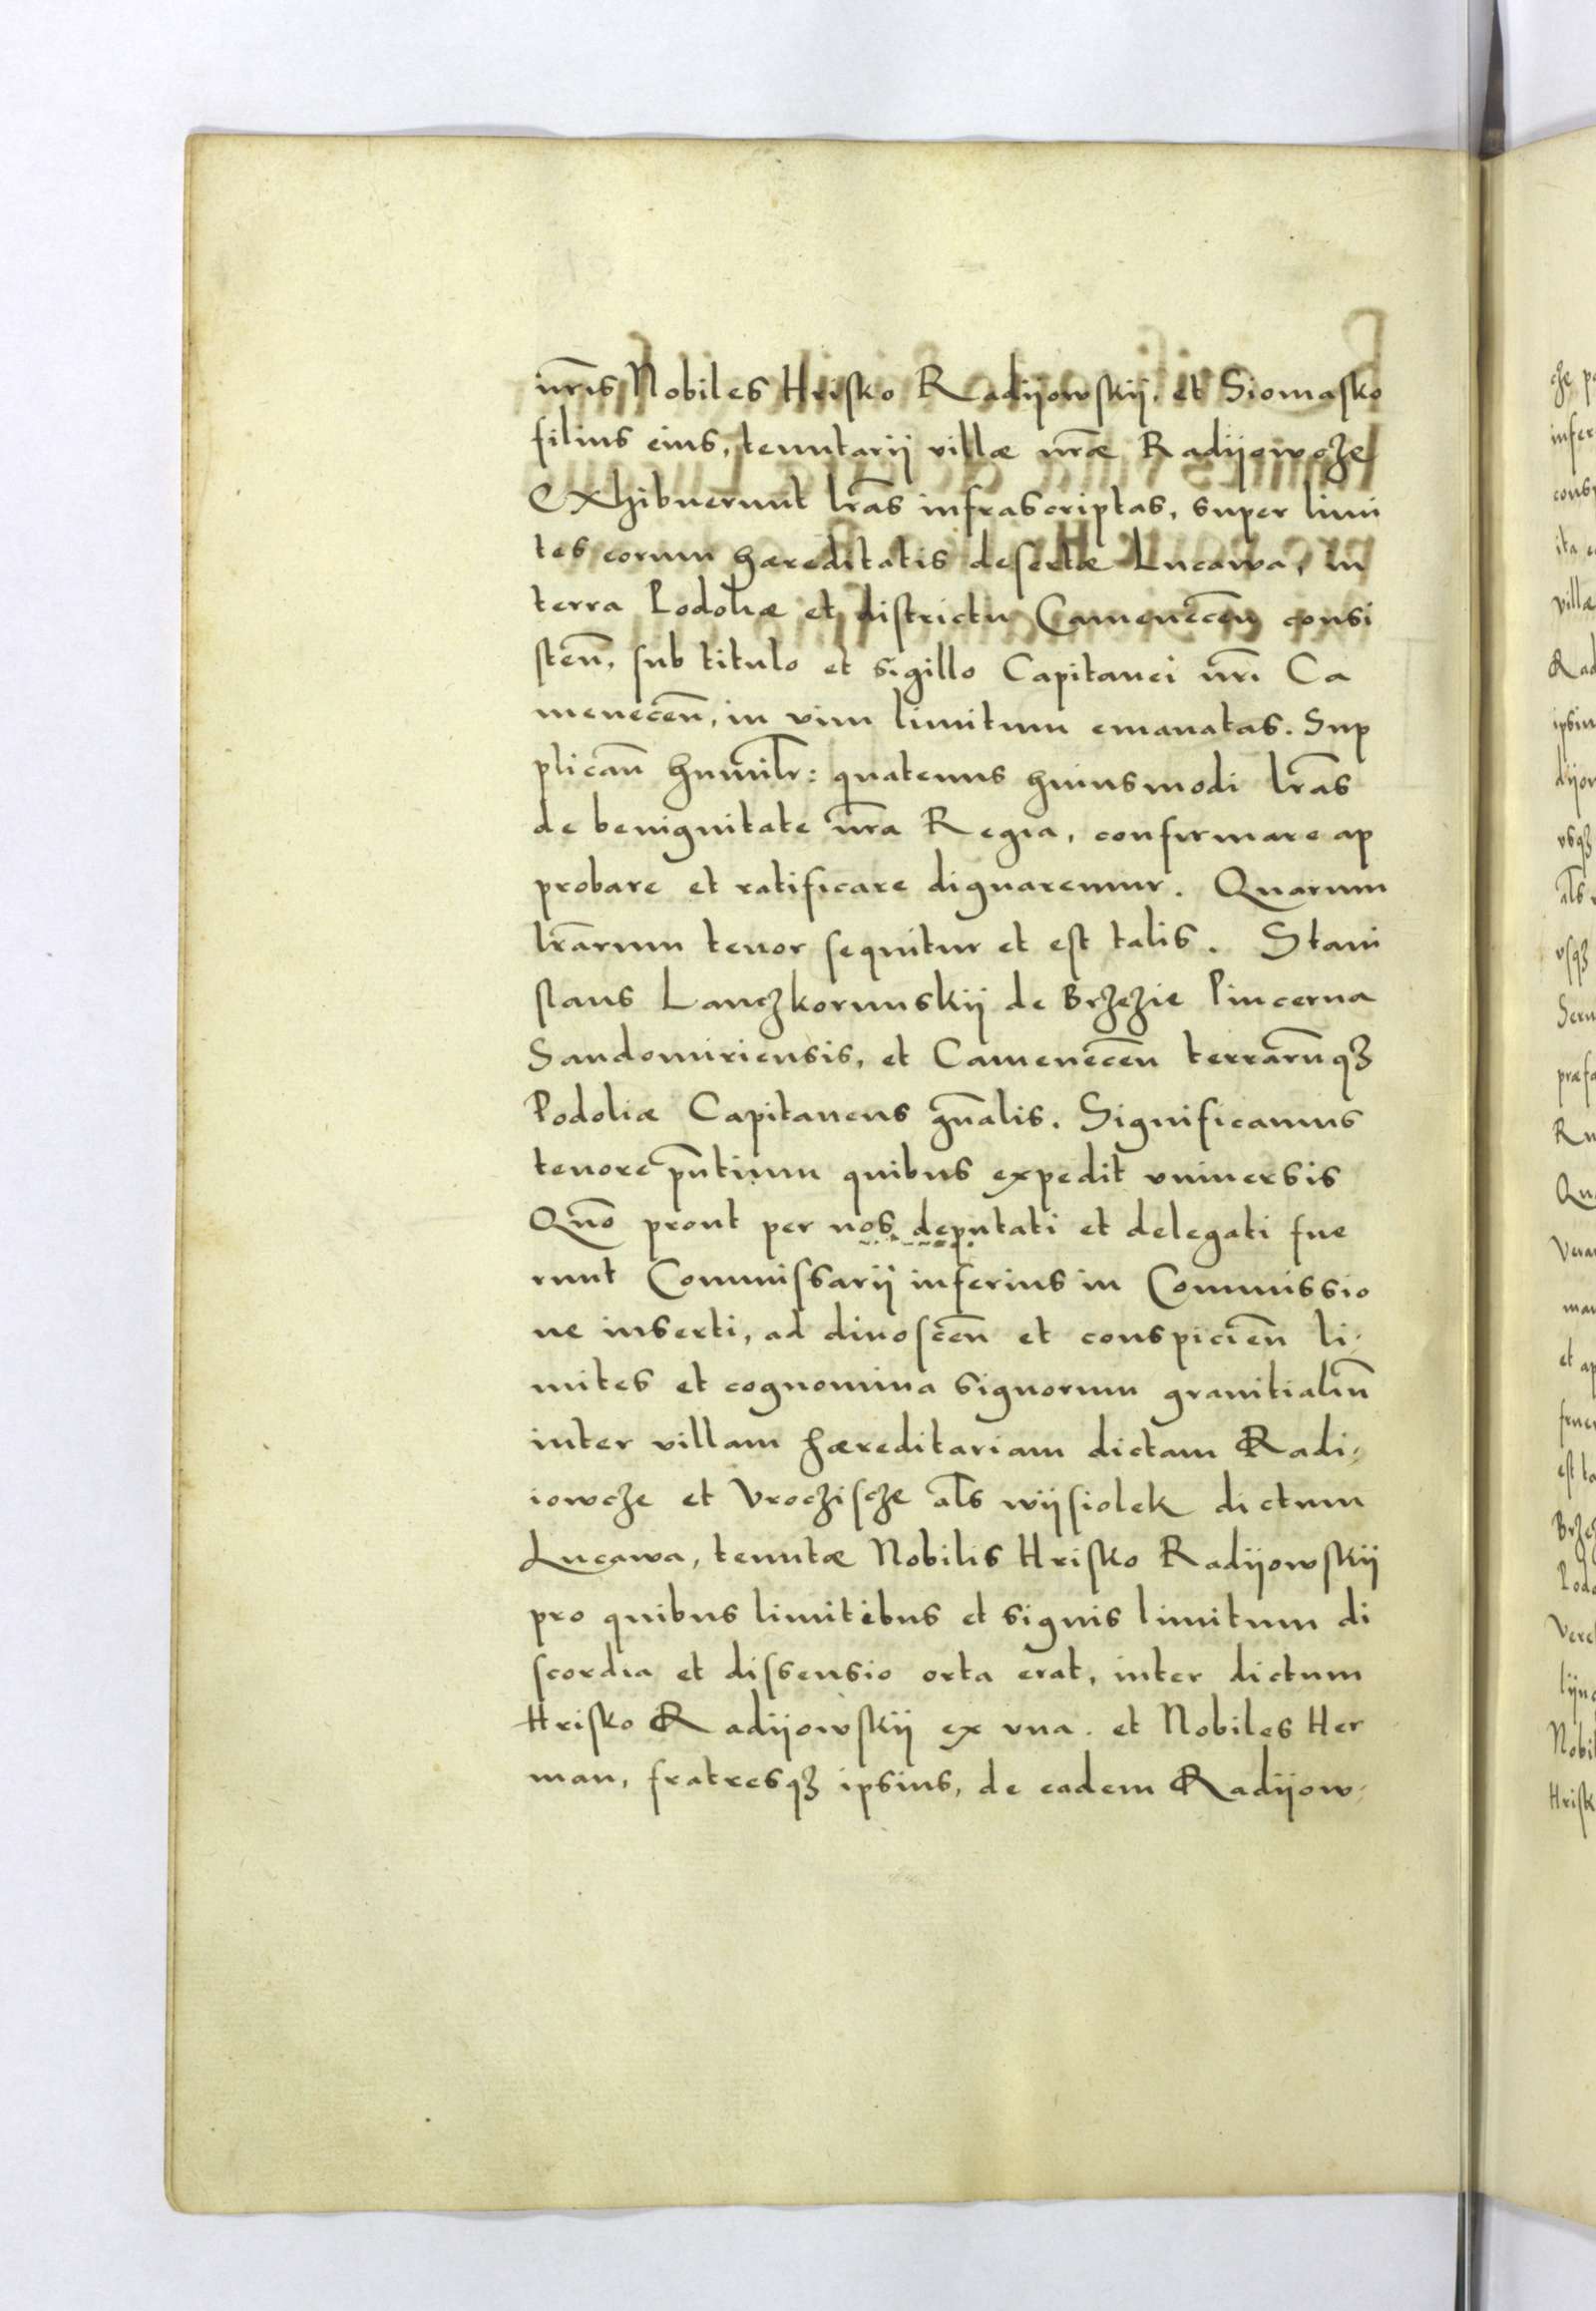 nr̃is Nobiles Hrisko Radijowskij. et Siomasko
filius eius, tenutarij villæ nr̃æ Radijowcze
Exhibuerunt lr̃as infrascriptas, super limi
tes eorum hæreditatis desertæ Lucawa, in
terra Podoliæ et districtu Camenecen̄ consi
sten̄, sub titulo et sigillo Capitanei nr̃i Ca
menecen̄, in vim limitum emanatas. Sup
plican̄ humilr̃: quatenus huiusmodi lr̃as
de benignitate nr̃a Regia, confirmare ap
probare et ratificare dignaremur. Quarum
lr̃arum tenor sequitur et est talis. Stani
slaus Lanczkorunskij de Brzezie Pincerna
Sandomiriensis, et Camenecen̄ terrarūqꝫ
Podoliæ Capitaneus gn̄alis. Significamus
tenore pn̄tium quibus expedit vniuersis
Quō prout per nos deputati et delegati fue
runt Commissarij inferius in Commissio
ne inserti, ad dinoscen̄ et conspicien̄ li-
mites et cognomina signorum granitialiū
inter villam hæreditariam dictam Radi-
iowcze et Vrocziscze al̃s wijsiolek dictum
Lucawa, tenutæ Nobilis Hrisko Radijowskij
pro quibus limitibus et signis limitum di
scordia et dissensio orta erat, inter dictum
Hrisko Radijowskij ex vna. et Nobiles Her
man, fratresqꝫ ipsius, de eadem Radijow-